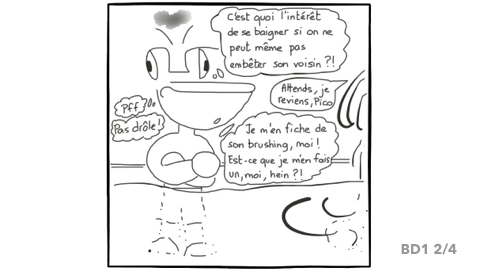 C'est quoi l'intérêt
de se baigner si on ne
peut même pas
embêter son voisin ?!
Attends, je
reviens, Pico
Pff
Pas drôle!
Je m'en fiche de
son brushing, moi!
Est-ce que je m'en fais
un, moi, hein ?!
BD1 2/4